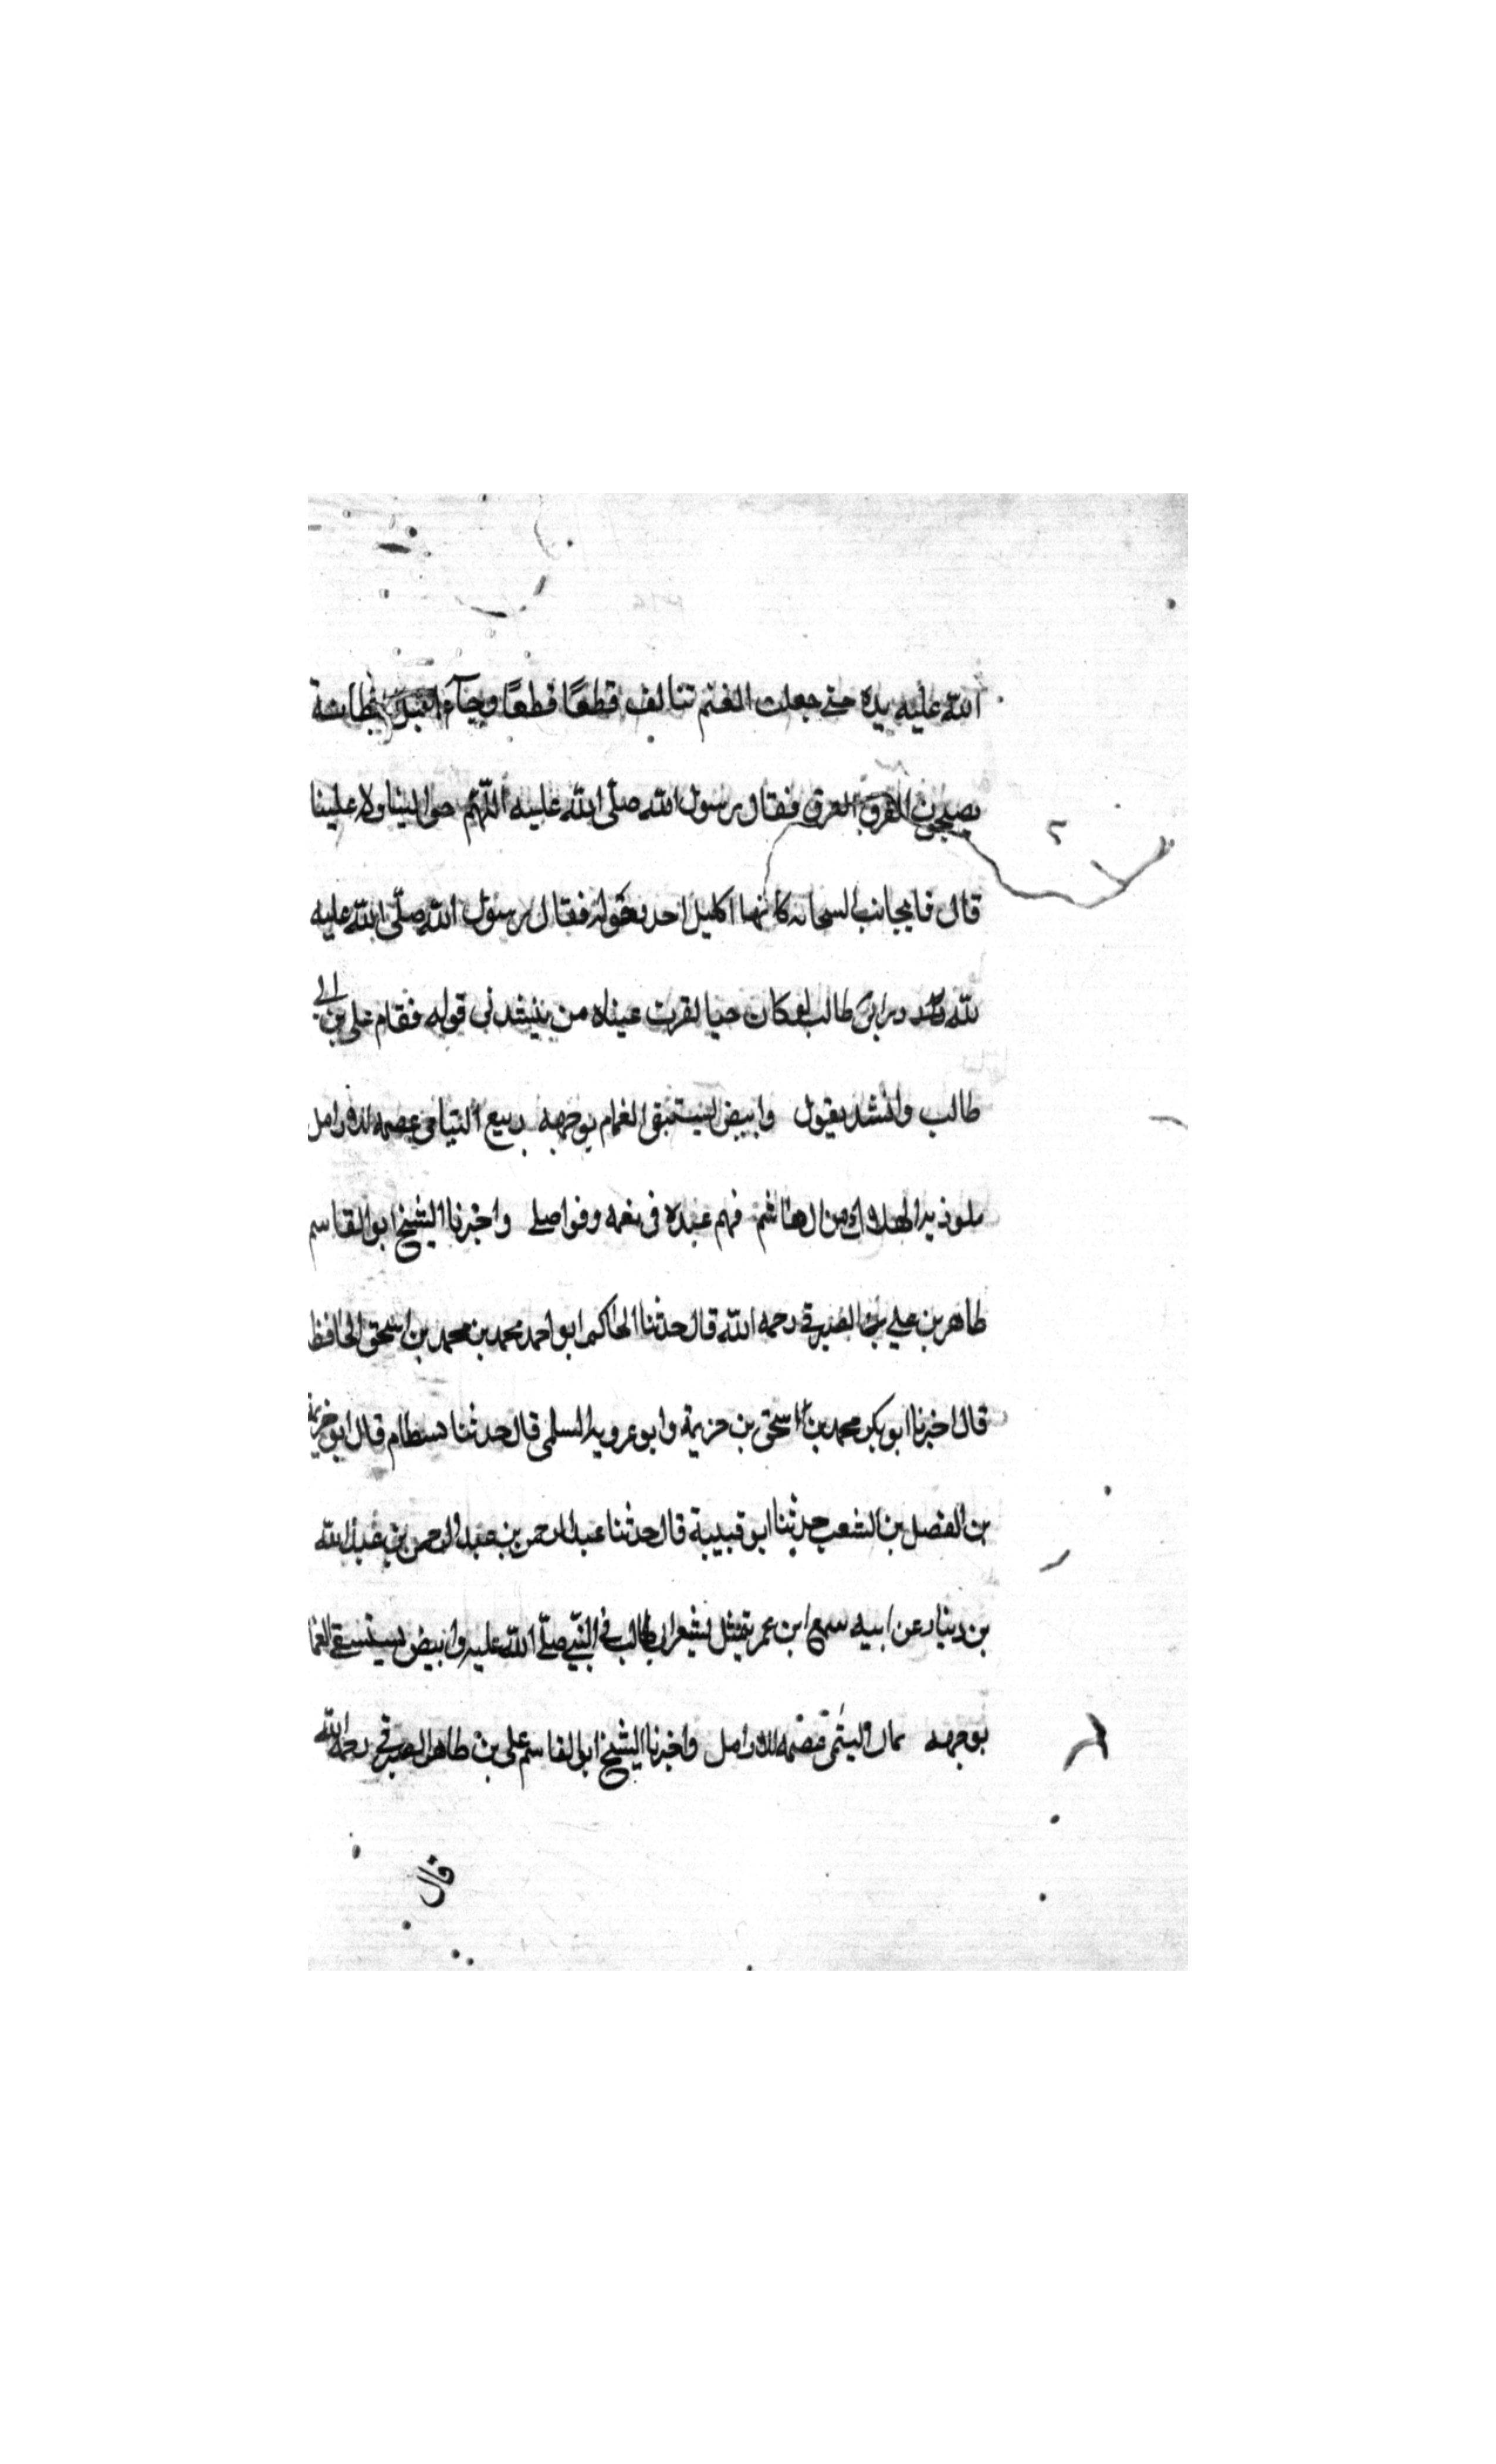 الله عليه يده حتى جعلت الغنم تتالف قطعًا قطعًا وجاء
يصيحون الغرق الغرق فقال رسول الله صلّى الله عليه اللهّم حوالينا ولا علينا
قال فانجابت السحابه كانها اكليل فقال رسول الله صلّى الله عليه
لله در ابى طالب لو كان حيا لقرت عيناه من ينشدنى قوله فقام على بن ابى
طالب وانشد يقول وابيض يستسقى الغمام بوجهه ربيع اليتامى عصمه للارامل
يلوذ به الهلاك من ال هاشم فهم عنده فى نعمه وفواضل واخبرنا الشيخ ابو القاسم
طاهر بن على بن الصيرفى رحمه الله قال حدثنا الحاكم ابو احمد محمد بن محمد بن اسحق الحافظ
قال اخبرنا ابو بكر محمد بن اسحق بن خزيمة وابو عروبه السلمى قال حدثنا بسطام قال ابو خزيمة
بن الفضل بن حدثنا ابو قتيبة قال حدثنا عبد الرحمن بن عبد الرحمن بن عبد الله
بن دينار عن ابيه سمع ابن عمر يتمثل بشعر ابى طالب فى النبّى صلّى الله عليه وابيض يستسقى الغما
بوجهه ثمال اليتمى عصمه للارامل واخبرنا الشيخ ابو القاسم على بن طاهر الصيرفى رحمه الله
قال